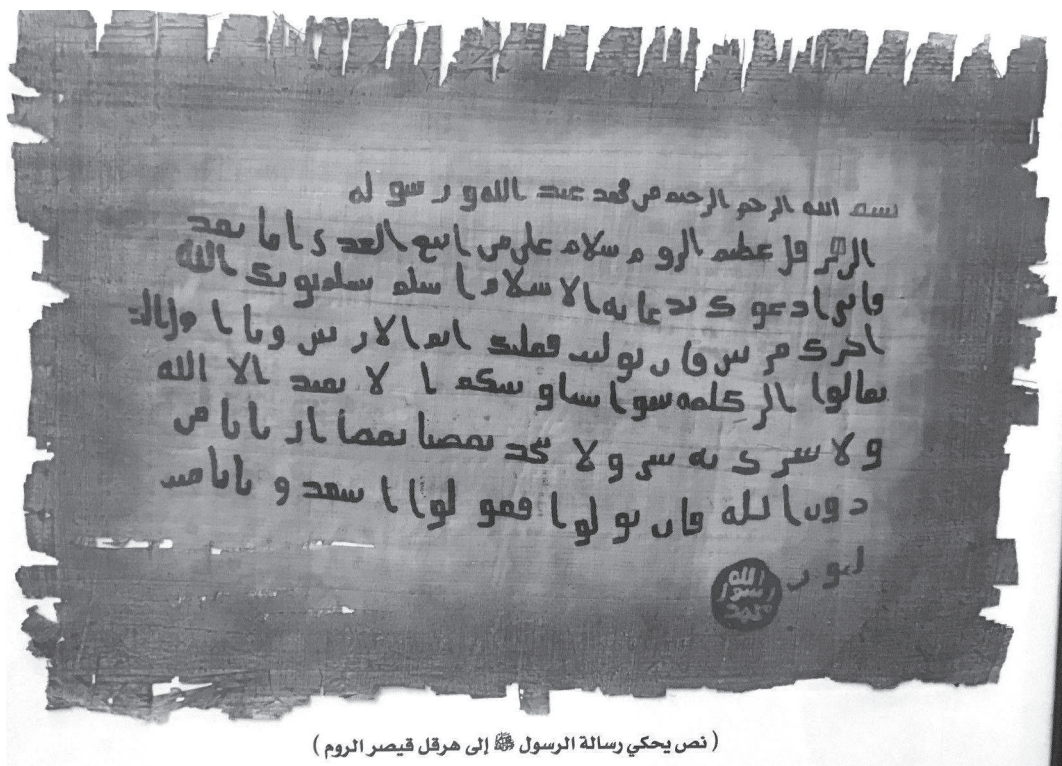 بسم الله الرحمن الرحيم من محمد عبد الله و رسوله
الى هرقل عظيم الروم سلام على من اتبع الهدى اما بعد
فانى ادعوك بدعاية الاسلام اسلم تسلم يوتك الله
اجرك مرتين فان توليت فعليك اثم الاريسين ويا اهل الك
تعالوا الى كلمة سوا بيننا وبينكم الا نعبد الا الله
ولا نشرك به شى ولا يتخذ بعضنا بعضا اربابا من
دون الله فان تولوا فقولوا اشهدو بانا مسـ
لمون
الله
رسول
محمد
( نص يحكي رسالة الرسول ﷺ إلى هرقل قيصر الروم )